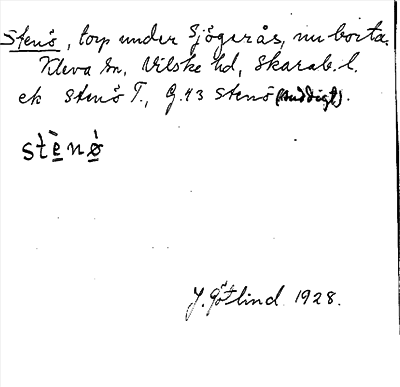 Stenö, torp under Sjögerås, nu borta.
Kleva sn, Vilske hd, Skarab. l.
ek Stenö T., G. 43 Stenö (tuddigt).
stè̱nø̱̀
J. Götlind 1928.